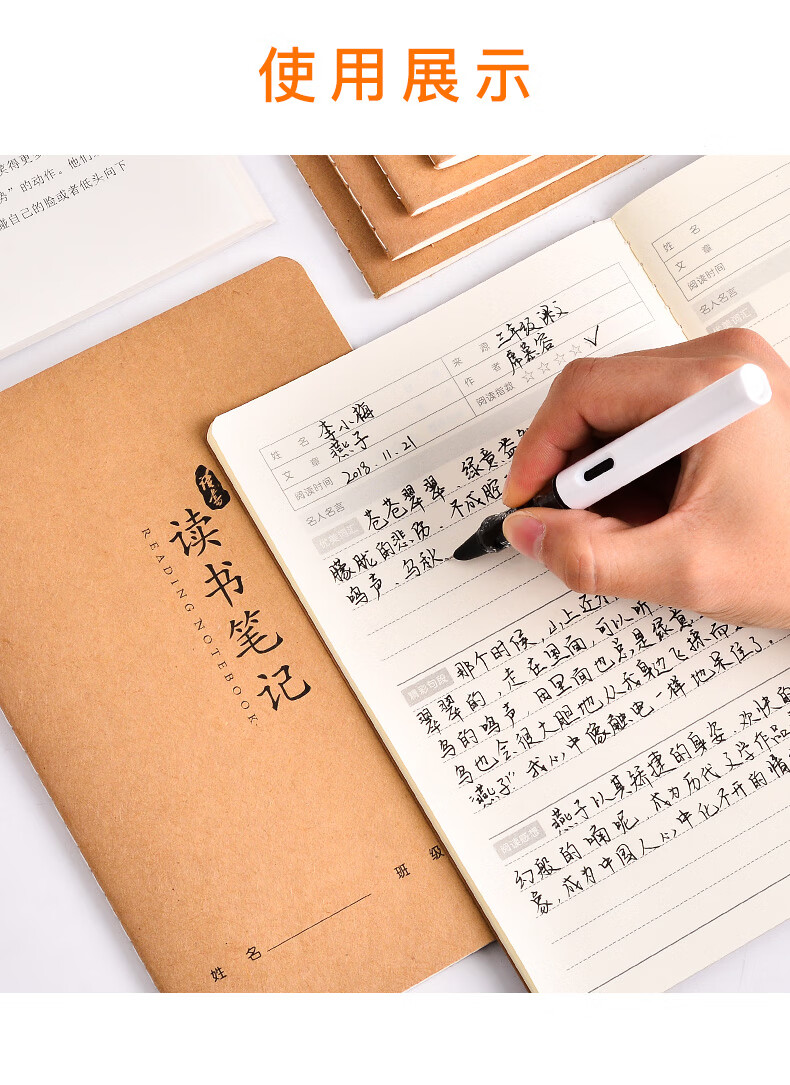 使用展示
的动作。他们
碰自己的脸或者低头向下
读书笔记
READING NOTEBOOK
班 级
姓 名
姓 名 李小梅
来 源 三年级课文
文 章 燕子
作 者 席慕容
阅读时间 2018.11.21
阅读指数 ☆☆☆☆ ✓
名人名言
优美词汇
苍苍翠翠、绿意盎
朦胧的悲伤、不成腔
鸣声、乌秋
精彩句段
那个时候,山上还
翠翠的,走在里面,可以听
鸟的鸣声,田里面也总是绿意
鸟也会很大胆地从我身边飞掠而
"燕子"我心中像触电一样地呆住了。
阅读感想
燕子以其矫捷的身姿、欢快的
幻般的喃呢,成为历代文学作品
象,成为中国人心中化不开的情
姓 名
文 章
阅读时间
名人名言
优美词汇